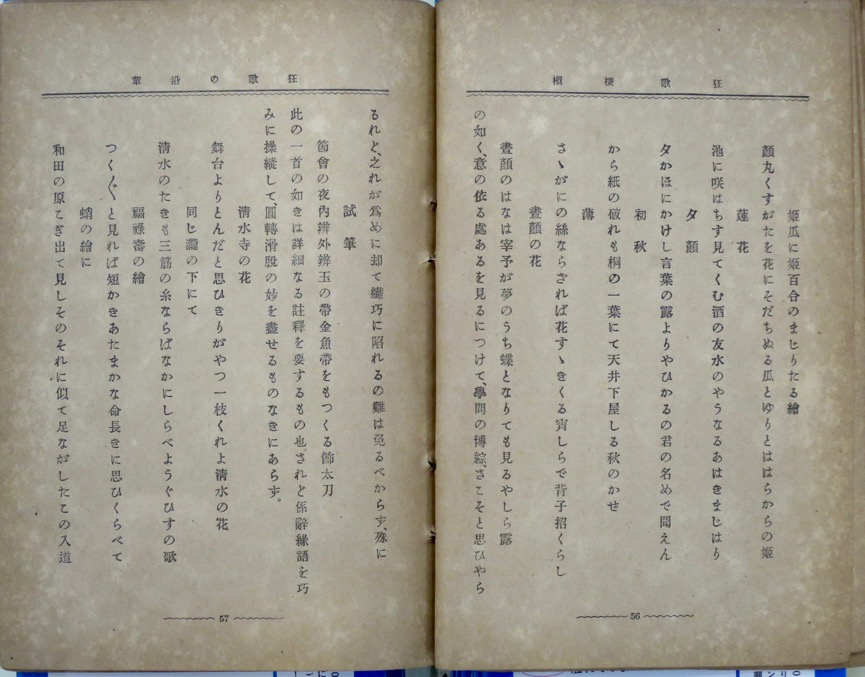 狂歌梗槪
姬瓜に姬百合のまじりたる繪
顏丸くすがたを花にそだちぬる瓜とゆりとははらからの姬
蓮花
池に咲はちす見てくむ酒の友水のやうなるあはきまじはり
夕顏
夕かほにかけし言葉の露よりやひかるの君の名めで聞えん
和秋
から紙の破れも桐の一葉にて天井下屋しる秋のかせ
薄
さゝがにの絲ならざれば花すゝきくる宵しらで背子招くらし
晝顏の花
晝顏のはなは宰予が夢のうち蝶となりても見るやしら露
の如く、意の依る處あるを見るにつけて、學問の博綜、さこそと思ひやら
56
狂歌の沿革
るれと、之れが爲めに却て纎巧に陷れるの難は免るべからす、殊に
試筆
節會の夜內辨外辨玉の帶金魚帶をもつくる餝太刀
此の一首の如きは詳細なる註釋を要するもの也、されど係辭緣語を巧
みに操縱して、圓轉滑脫の妙を盡せるものなきにあらす。
淸水寺の花
舞台よりとんだと思ひきりがやつ一枝くれよ淸水の花
同じ瀧の下にて
淸水のたきも三筋の糸ならばなかにしらべようぐひすの歌
福祿壽の繪
つく〴〵と見れば短かきあたまかな命長きに思ひくらべて
蛸の繪に
和田の原こぎ出て見しそのそれに似て足ながしたこの入道
57